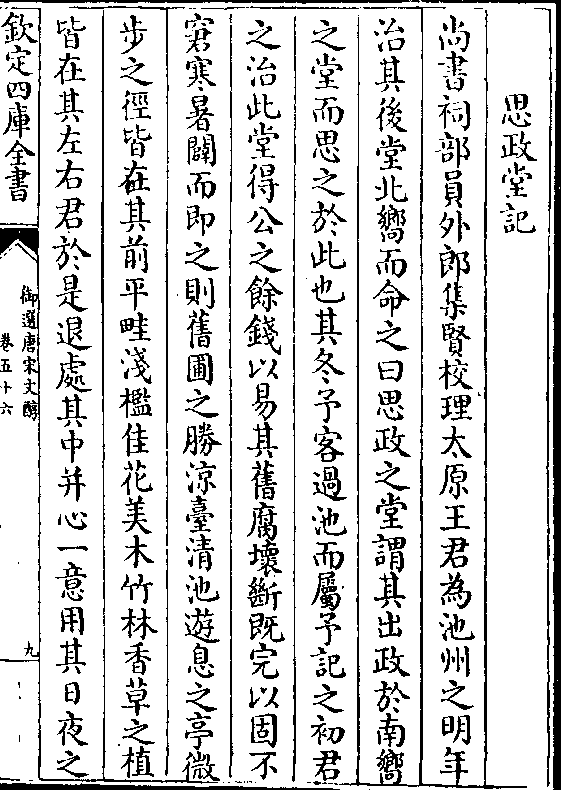 思政堂記
尚書祠部員外郎集賢校理太原王君為池州之明年
治其後堂北嚮而命之曰思政之堂謂其出政於南嚮
之堂而思之於此也其冬予客過池而屬予記之初君
之治此堂得公之餘錢以易其舊腐壞斷既完以固不
窘寒暑闢而即之則舊圃之勝涼臺清池遊息之亭微
步之徑皆在其前平畦淺檻佳花美木竹林香草之植
皆在其左右君於是退處其中并心一意用其日夜之
欽定四庫全書
御選唐宋文醇
卷五十六
九